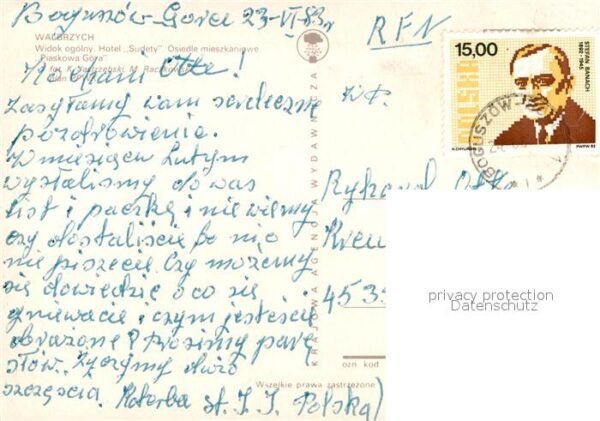 Boguszów-Gorce 23-VI-83r
RFN
WAŁBRZYCH
Widok ogólny. Hotel „Sudety" Osiedle mieszkaniowe
„Piaskowa Góra"
fot. K. Jastrzębski, M. Raczkowski
Kochani Otto!
zasyłamy wam serdeczne
pozdrowienia.
W miesiącu Lutym
wysłaliśmy do was
list i paczkę i nie wiemy
czy dostaliście bo nic
nie piszecie. Czy możemy
się dowiedzić o co się
gniewacie i czym jesteście
obrażone? Prosimy parę
słów. Życzymy dużo
szczęścia. Kotorba st. I. J. Polska)
KRAJOWA AGENCJA WYDAWNICZA
W.P.
Ryhard Ott
453
ozn. kod
Wszelkie prawa zastrzeżone
15,00
POLSKA
STEFAN BANACH
1892-1945
PWPW.82
BOGUSZÓW
privacy protection
Datenschutz